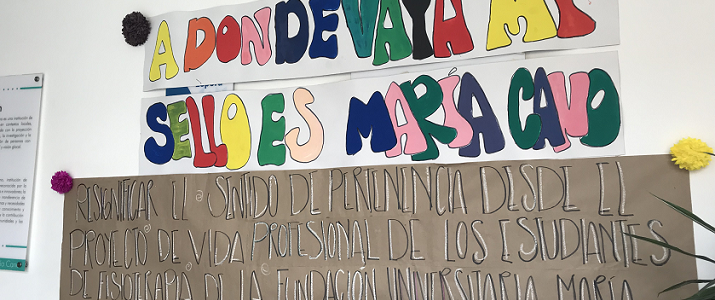 A DONDE VAYA MI
SELLO ES MARÍA CANO
RESIGNIFICAR EL SENTIDO DE PERTENENCIA DESDE EL
PROYECTO DE VIDA PROFESIONAL DE LOS ESTUDIANTES
DE FISIOTERAPIA DE LA FUNDACIÓN UNIVERSITARIA MARÍA